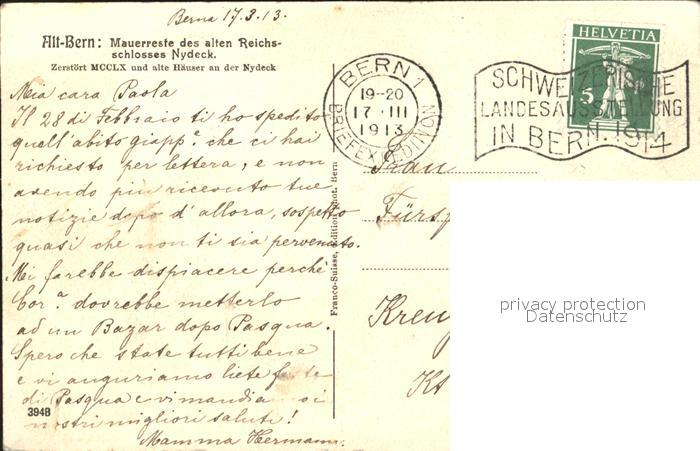 Berna 17.3.13.
Alt-Bern: Mauerreste des alten Reichs-
schlosses Nydeck.
Zerstört MCCLX und alte Häuser an der Nydeck
Mia cara Paola
Il 28 di Febbraio ti ho spedito
quell'abito giapp.e che ci hai
richiesto per lettera, e non
avendo più ricevuto tue
notizie dopo d'allora, sospetto
quasi che non ti sia pervenuto.
Mi farebbe dispiacere perchè
dovrebbe metterlo
ad un Bazar dopo Pasqua.
Spero che state tutti bene
e vi auguriamo liete feste
di Pasqua e vi mandiamo i
nostri migliori saluti!
Mamma Hermann.
3948
Franco-Suisse, édition phot. Bern
BERN 1
19-20
17 III
1913
BRIEFEXPEDITION
SCHWEIZERISCHE
LANDESAUSSTELLUNG
IN BERN. 1914
HELVETIA
5
Frau
Fürsp
Kreuz
Kt
privacy protection
Datenschutz